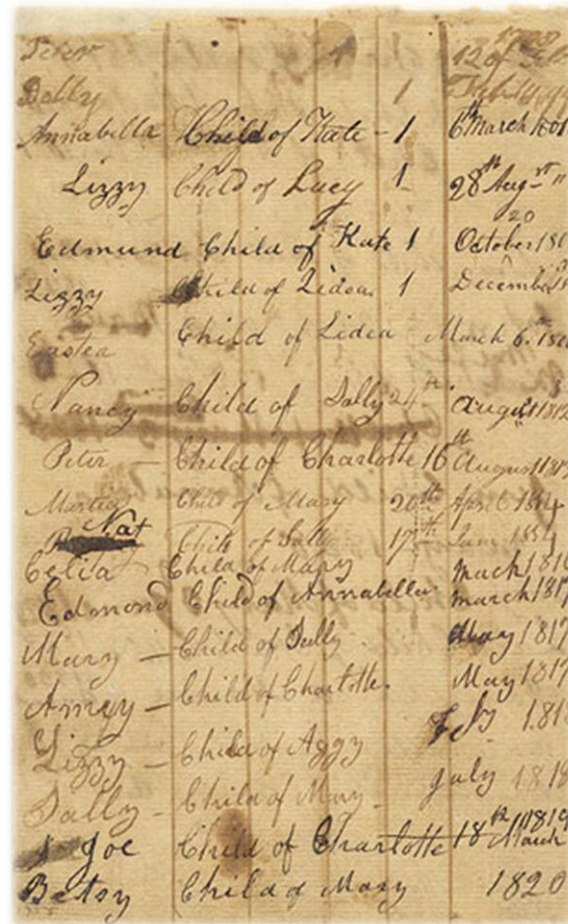 Peter 1 12 of
Dolly 1
Annabella Child of Kate - 1 6th March
Lizzy Child of Lucy 1 28th Augst "
20
Edmund Child of Kate 1 October
Lizzy Child of Lidea 1 December
Child of Lidea March 6
Nancy Child of Sally 24th August 1812
Peter - Child of Charlotte 16th August
Child of Mary 20th April 1814
Nat Child of Sally 17th June
Celia Child of Mary March 1816
Edmond Child of Annabella March 1817
Mary - Child of Sally May 1817
Amey - Child of Charlotte. May 1817
Lizzy - Child of Aggy 1818
Sally - Child of Mary - July 1818
Joe Child of Charlotte 18th March 1819
Betsy Child of Mary 1820